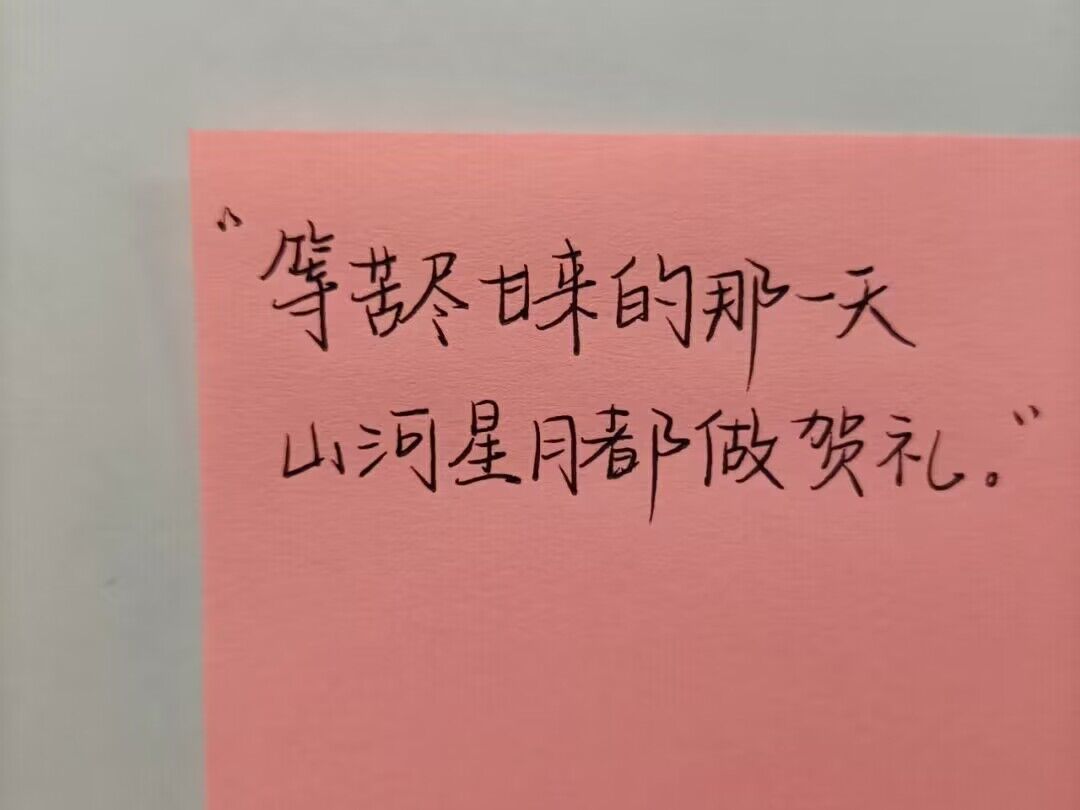 “等苦尽甘来的那一天
山河星月都做贺礼。”